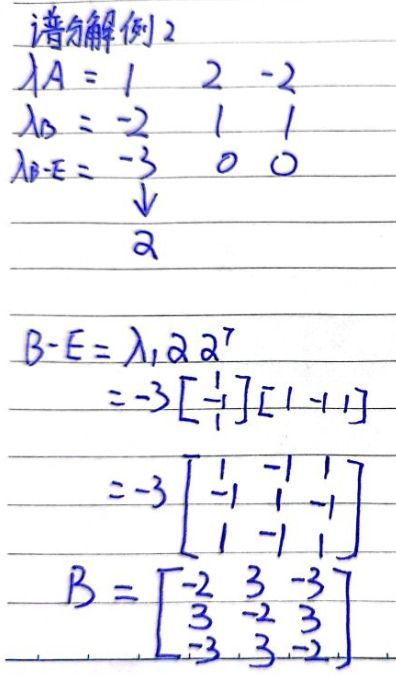 谱分解例2
λA = 1 2 -2
λB = -2 1 1
λB-E = -3 0 0
↓
α
B-E = λ₁ α αᵀ
= -3 [1 -1 1] [1 -1 1]
= -3 [1 -1 1
-1 1 -1
1 -1 1]
B = [-2 3 -3
3 -2 3
-3 3 -2]